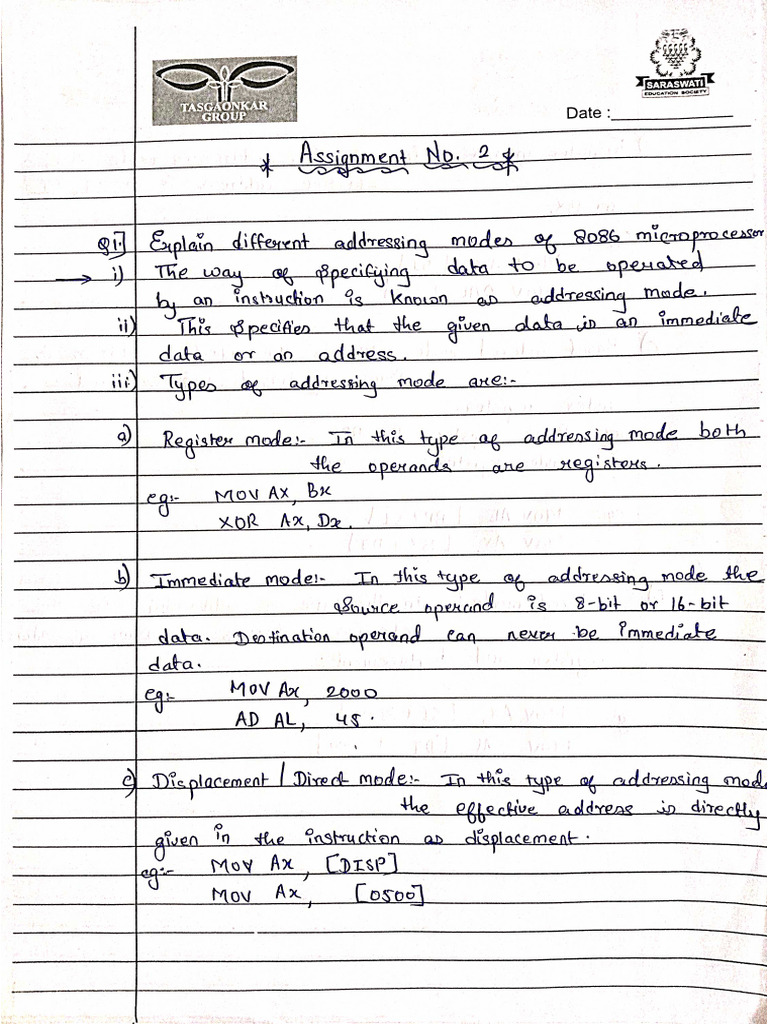 TASGAONKAR
GROUP
SARASWATI
EDUCATION SOCIETY
Date :
* Assignment No. 2 *
Q1.] Explain different addressing modes of 8086 microprocessor
→ i) The way of specifying data to be operated
by an instruction is known as addressing mode.
ii) This specifies that the given data is an immediate
data or an address.
iii) Types of addressing mode are:-
a) Register mode:- In this type of addressing mode both
the operands are registers.
eg:- MOV AX, Bx
XOR Ax, Dx.
b) Immediate mode:- In this type of addressing mode the
source operand is 8-bit or 16-bit
data. Destination operand can never be immediate
data.
eg:- MOV Ax, 2000
AD AL, 45.
c) Displacement / Direct mode:- In this type of addressing mode
the effective address is directly
given in the instruction as displacement.
eg:- MOV Ax, [DISP]
MOV Ax, [0500]